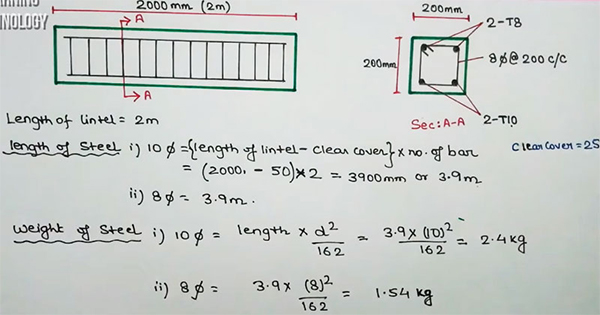 NOLOGY
2000mm (2m)
A
A
200mm
200mm
2-T8
8∅@200 c/c
2-T10
Sec: A-A
Length of lintel = 2m
length of Steel i) 10∅ = {length of lintel - clear cover} x no. of bar
Clear cover = 25
= (2000, - 50)*2 = 3900mm or 3.9m
ii) 8∅ = 3.9m.
Weight of Steel i) 10∅ = length x d²/162 = 3.9 x (10)²/162 = 2.4 kg
ii) 8∅ = 3.9 x (8)²/162 = 1.54 kg